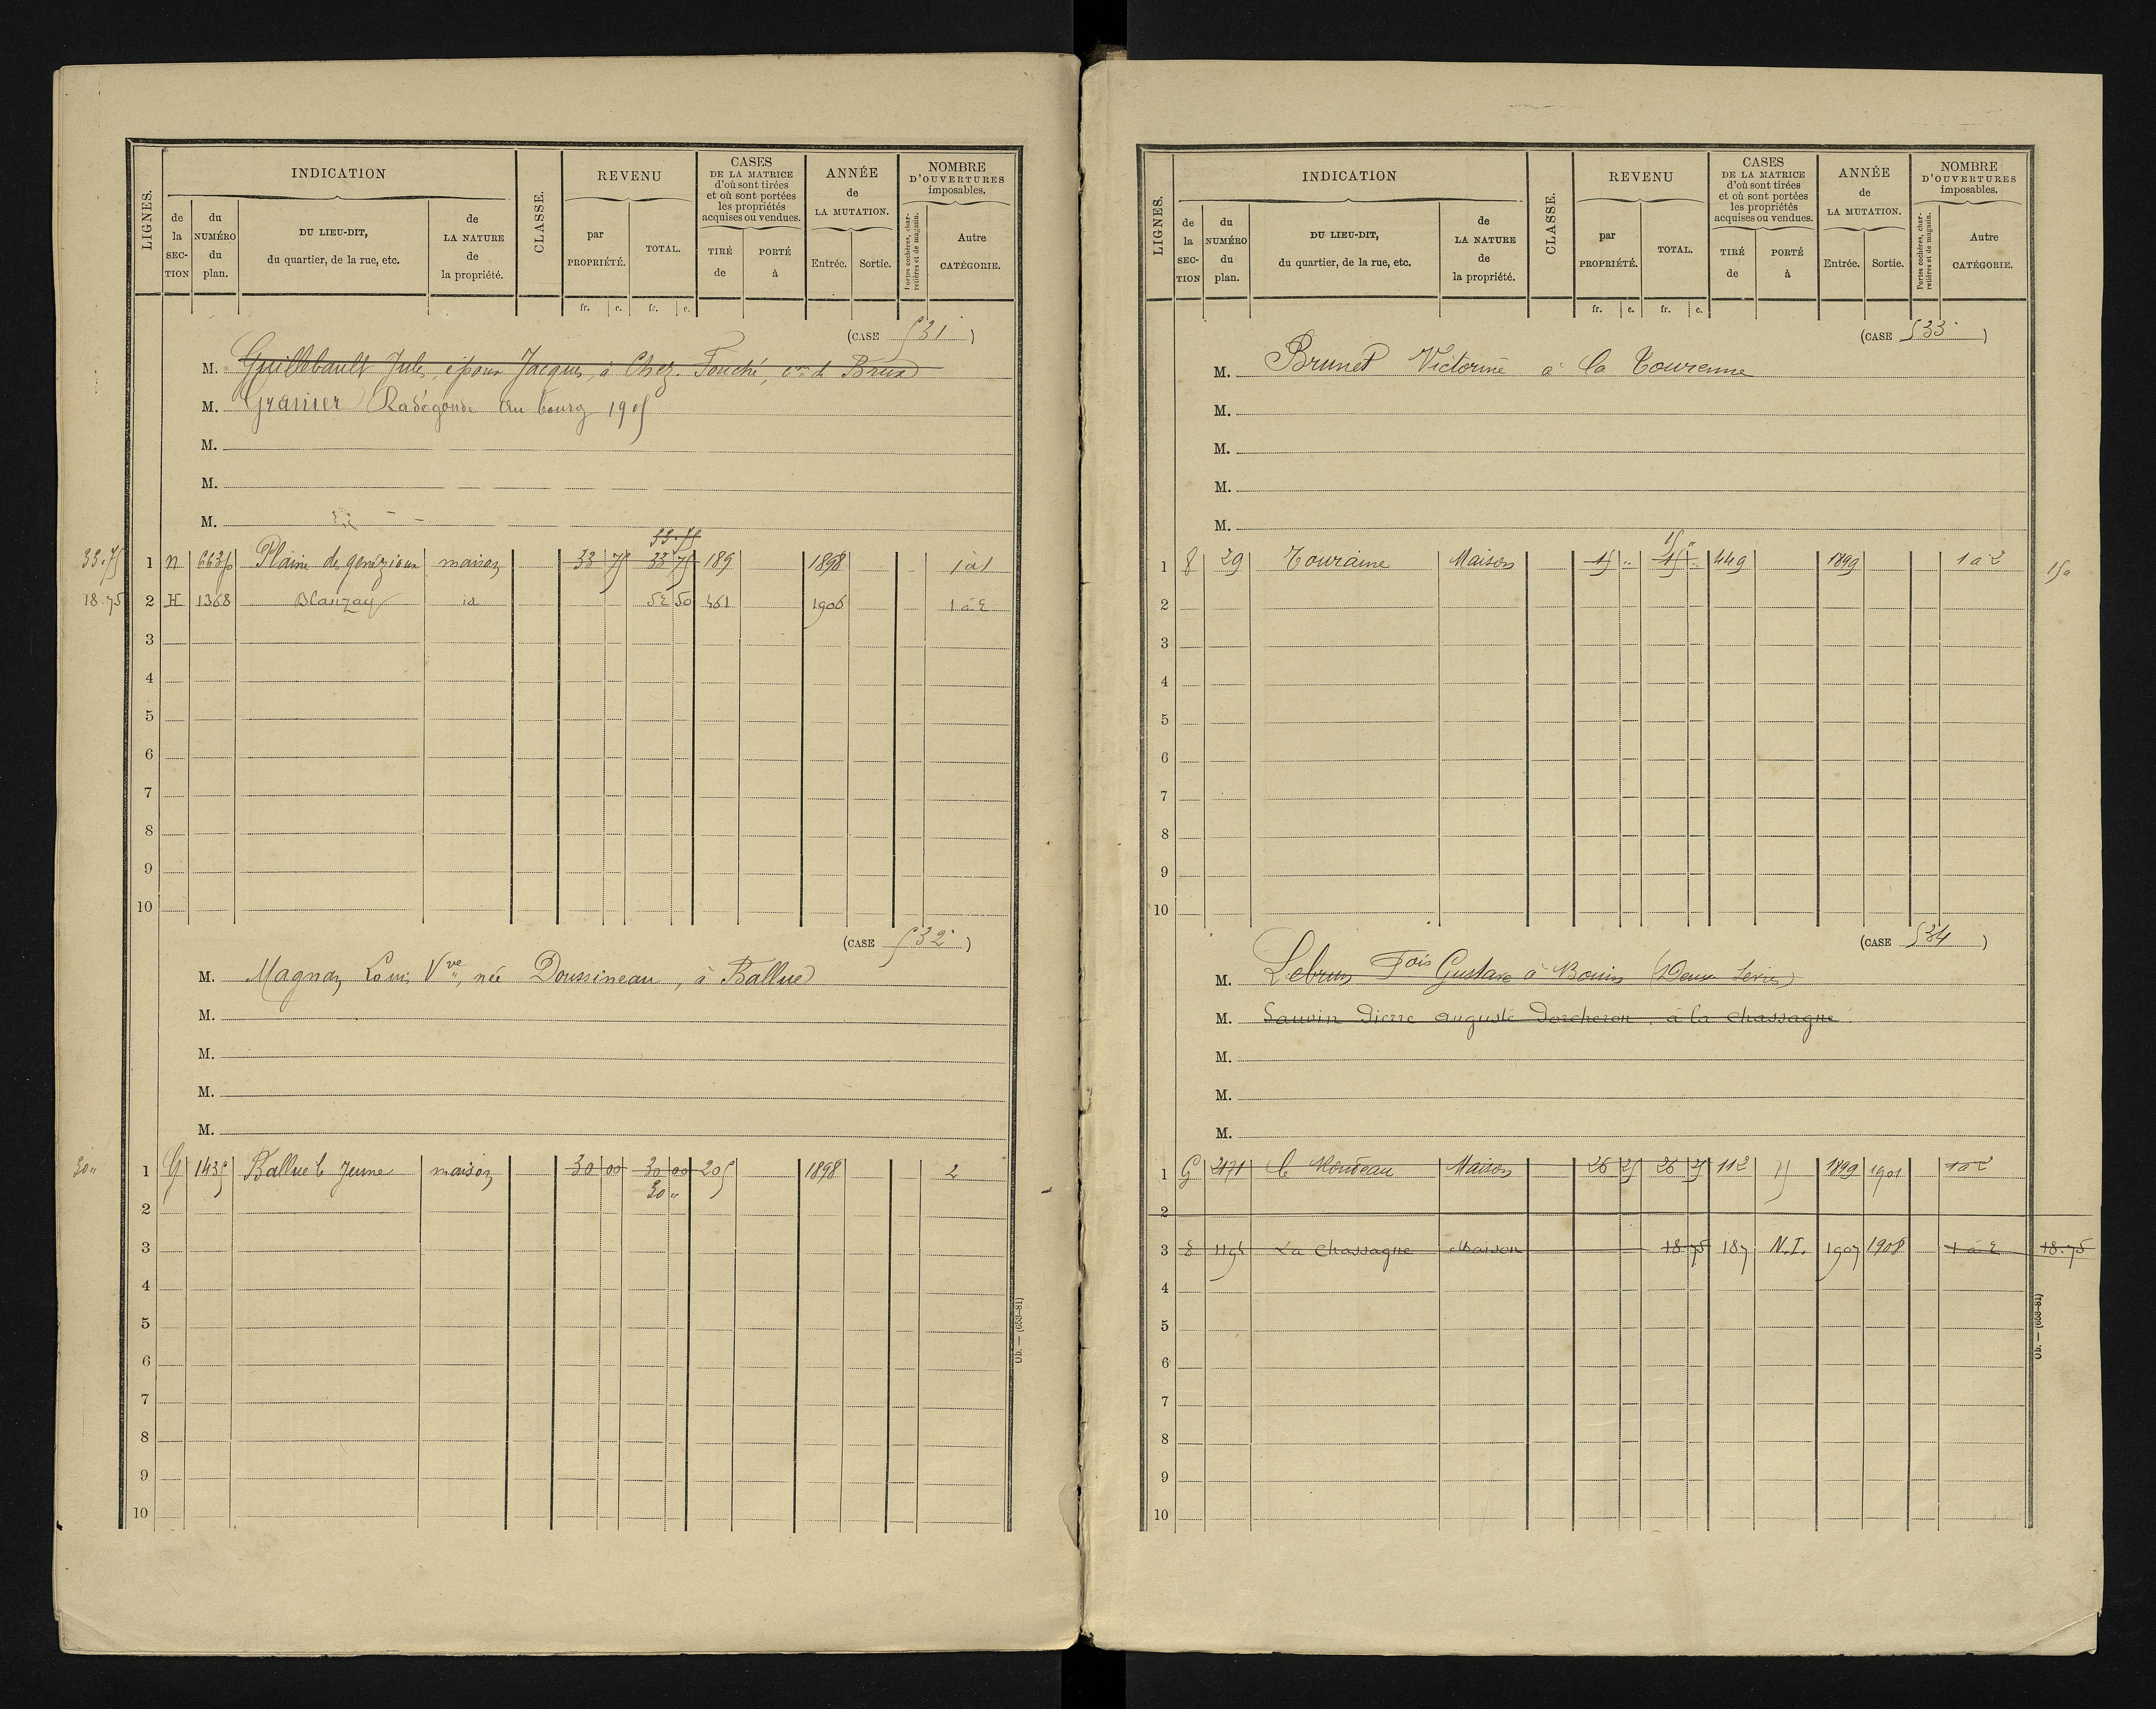 LIGNES. INDICATION CLASSE. REVENU CASES DE LA MATRICE d'où sont tirées et où sont portées les propriétés acquises ou vendues. ANNÉE de LA MUTATION. NOMBRE D'OUVERTURES imposables.
de la SEC-TION du NUMÉRO du plan. DU LIEU-DIT, du quartier, de la rue, etc. de LA NATURE de la propriété. par PROPRIÉTÉ. TOTAL. TIRÉ de PORTÉ à Entrée. Sortie. Portes cochères, charretières et de magasin. Autre CATÉGORIE.
fr. c. fr. c.
(CASE 531 )
M. Guillebault Jules, époux Jacques, à Chez-Fouché, cne de Brux
M. Granier Radégonde au bourg 1905
M.
M.
M.
33.75
33.75 1 N 663p Plaine de genézioux maison 33 75 33 75 189 1898 1 à 1
18.75 2 H 1368 Blanzay id 52 50 461 1906 1 à 2
3
4
5
6
7
8
9
10
(CASE 532 )
M. Magnan Louis Vve, née Doussineau, à Ballue
M.
M.
M.
M.
30" 1 G 1435 Ballue le Jeune maison 30 00 30 00 205 1898 2
30 "
2
3
4
5
6
7
8
9
10
Ob. — (653-81)
LIGNES. INDICATION CLASSE. REVENU CASES DE LA MATRICE d'où sont tirées et où sont portées les propriétés acquises ou vendues. ANNÉE de LA MUTATION. NOMBRE D'OUVERTURES imposables.
de la SEC-TION du NUMÉRO du plan. DU LIEU-DIT, du quartier, de la rue, etc. de LA NATURE de la propriété. par PROPRIÉTÉ. TOTAL. TIRÉ de PORTÉ à Entrée. Sortie. Portes cochères, charretières et de magasin. Autre CATÉGORIE.
fr. c. fr. c.
(CASE 533 )
M. Brunet Victorine à la Tourenne
M.
M.
M.
M.
15 "
1 29 Touraine Maison 15 " 15 " 449 1899 1 à 2 15"
2
3
4
5
6
7
8
9
10
(CASE 534 )
M. Lebrun Fois Gustave à Bouin (Deux Sèvres)
M. Sauvin Pierre auguste Porcheron, à la chassagne.
M.
M.
M.
1 G 2171 Maison 26 25 26 25 112 1899 1901 1 à 2
2
3 1195 La Chassagne Maison 18 75 187 N.I. 1907 1908 1 à 2 18.75
4
5
6
7
8
9
10
Ob. — (653-81)